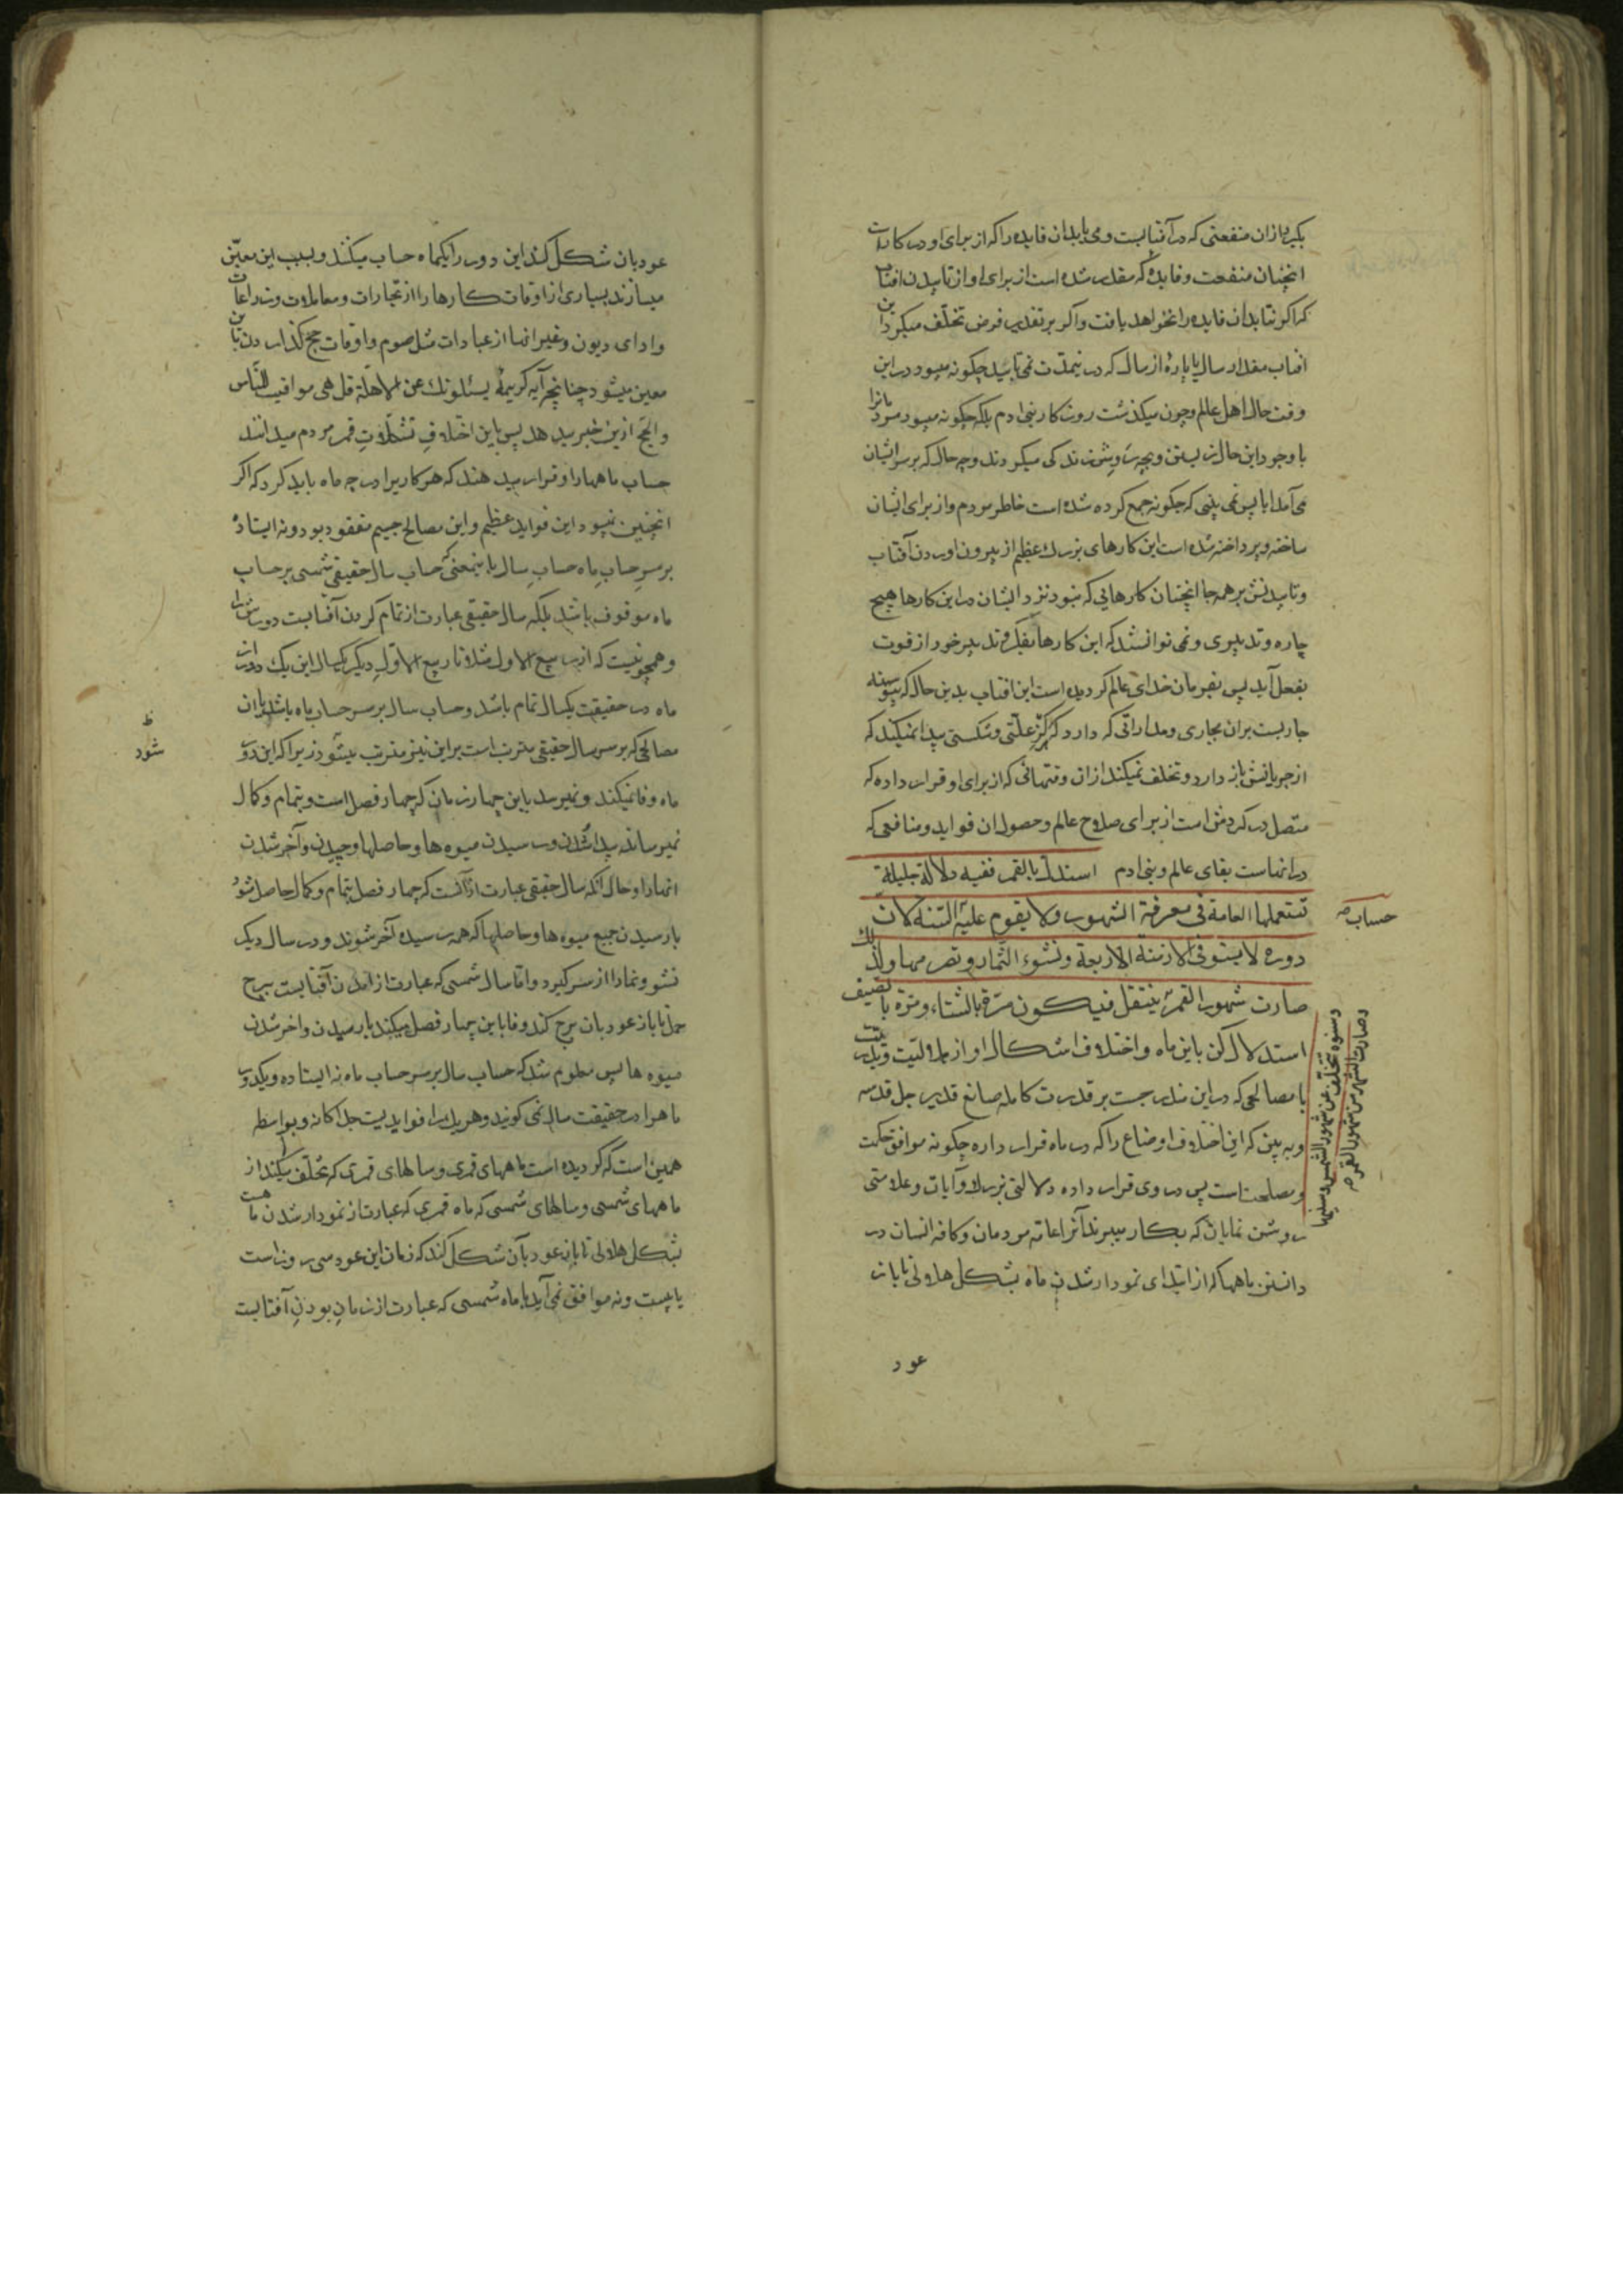 بگیرد ازان منفعتی که در آفتابست و می‌یابد ان فایده را که از برای او در کار است
انچنان منفعت و فایدهٔ که مقدر شده است از برای او از تابیدن افتاب
که اگر نتابد ان فایده را نخواهد یافت و اگر بر تقدیر فرض تخلّف میکرد این
افتاب مقدار سال یا پارهٔ از سال که در نیمدّت نمی تابید چکونه میبود در این
وقت حال اهل عالم و چون میکذشت روزکار بنی ادم بلکه چکونه میبود مردمانرا
با وجود این حال زیستن و بچه روش زندکی میکردند و چه حال که بر سر ایشان
می‌آمد ایا پس نمی بینی که چکونه جمع کرده شده است خاطر مردم و از برای ایشان
ساخته و پرداخته شده است این کارهای بزرك عظیم از بیرون اوردن آفتاب
و تابیدنش بر همه جا انچنان کارهایی که نبود نزد ایشان در این کارها هیچ
چاره و تدبیری و نمی توانستند که این کارها بفکر و تدبیر خود از قوت
بفعل آید پس بفرمان خدای عالم کردیده است این افتاب بدین حال که پیوسته
جاریست بران مجاری و مداراتی که دارد که هرکز علّتی و شکستی پیدا نمیکند که
از جریانش باز دارد و تخلف نمیکند ازان وقتهائی که از برای او قرار داده که
متصل در کردش است از برای صلاح عالم و حصول ان فواید و منافعی که
در انهاست بقای عالم و بنی ادم استدل بالقمر ففیه دلالة جلیلة
تستعملها العامة فی معرفة الشهور ولا یقوم علیه السّنة لان
حساب صح
دوره لا یستوفی الازمنة الاربعة ونشوء الثمار وتصرمها ولذلك
صارت شهور القمر ینتقل فیکون مرّة بالشتاء ومرّة بالصیف
وسنوه تتخلّف عن شهور الشمس وسنیها
وصارت الشهر من شهور القمر صح
استدلال کن باین ماه و اختلاف اشکال او از هلالیّت و بدریّت
با مصالحی که در این مندرجست بر قدرت کامله صانع قدیر جل قدسه
و به بین که این اختلاف اوضاع را که در ماه قرار داده چکونه موافق حکمت
و مصلحت است پس در وی قرار داده دلالتی بزرك و آیات و علامتی
روشن نمایان که بکار میبرند آنرا عامّه مردمان و کافه انسان در
دانستن ماهها که از ابتدای نمودار شدن ماه بشکل هلالی تا باز
عود
عود بان شکل کند این دور را یکماه حساب میکنند و بسبب این معیّن
میسازند بسیاری از اوقات کارها را از تجارات و معاملات و زراعات
و ادای دیون و غیر انها از عبادات مثل صوم و اوقات حج کذاردن باین
معین میشود چنانچه آیه کریمهٔ یسئلونك عن الاهلّة قل هی مواقیت للنّاس
والحجّ ازین خبر میدهد پس باین اختلافِ تشکّلاتِ قمر مردم میدانند
حساب ماهها را و قرار میدهند که هر کاریرا در چه ماه باید کرد که اکر
انچنین نمیبود این فواید عظیم و این مصالح جسیم مفقود بود و نه ایستادهٔ
بر سرِ حسابِ ماه حسابِ سال باینمعنی که حساب سال حقیقی شمسی بر حساب
ماه موقوف باشد بلکه سال حقیقی عبارت از تمام کردن آفتابست دورش را
و همچو نیست که از ربیع الاول مثلا تا ربیع الاولِ دیکر یکسال این یك دوازده
ماه در حقیقت یکسال تمام باشد و حساب سال بر سر حساب ماه باشد یا ان
مصالحی که بر سر سال حقیقی مترتب است بر این نیز مترتب میشود زیرا که این دور
ظ
شود
ماه وفا نمیکند و نمیرسد باین چهار زمان که چهار فصل است و بتمام و کمال
نمیرساند پیدا شدن و رسیدن میوه ها و حاصلها و چیدن و آخر شدن
انها را و حال آنکه سال حقیقی عبارت از آنست که چهار فصل بتمام و کمال حاصل شود
با رسیدن جمیع میوه ها و حاصلها که همه رسیده آخر شوند و در سال دیکر
نشو و نما را از سَر کیرد و امّا سال شمسی که عبارت از امدن آفتابست ببرج
حمل تا باز عود بان برج کند وفا باین چهار فصل میکند با رسیدن و اخر شدن
میوه ها پس معلوم شد که حساب سال بر سَر حساب ماه نه ایستاده و یکدور
ماهرا در حقیقت سال نمی کویند و هر یك را فوایدیست جداکانه و بواسطه
همین است که کردیده است ماههای قمری و سالهای قمری که تخلّف میکند از
ماههای شمسی و سالهای شمسی که ماه قمری که عبارت از نمودار شدن ماهست
بشکل هلالی تا باز عود بآن شکل کند که زمان این عود سی روز است
یا بیست و نه موافق نمی‌آید با ماه شمسی که عبارت از زمانِ بودنِ آفتابست